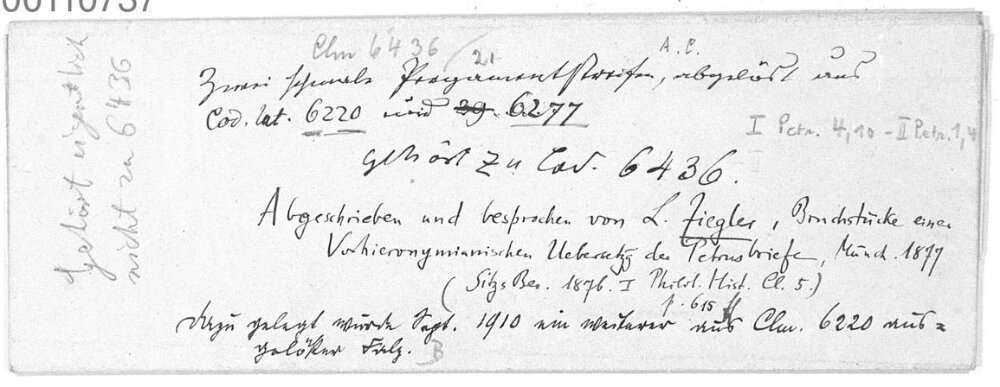 00110737
Clm 6436/21
A. C.
Zwei schmale Pergamentstreifen, abgelöst aus
Cod. lat. 6220 und 6277
I Petr. 4,10 - II Petr. 1,4
gehört zu Cod. 6436.
Abgeschrieben und besprochen von L. Ziegler, Bruchstücke einer
Vorhieronymianischen Uebersetzg der Petrusbriefe, Münch. 1877
(Sitzs Ber. 1876. I Philol. Hist. Cl. 5.)
p. 615 ff
Dazu gelegt wurde Sept. 1910 ein weiterer aus Clm. 6220 aus=
gelöster Falz. B
Gehört eigentlich
nicht zu 6436